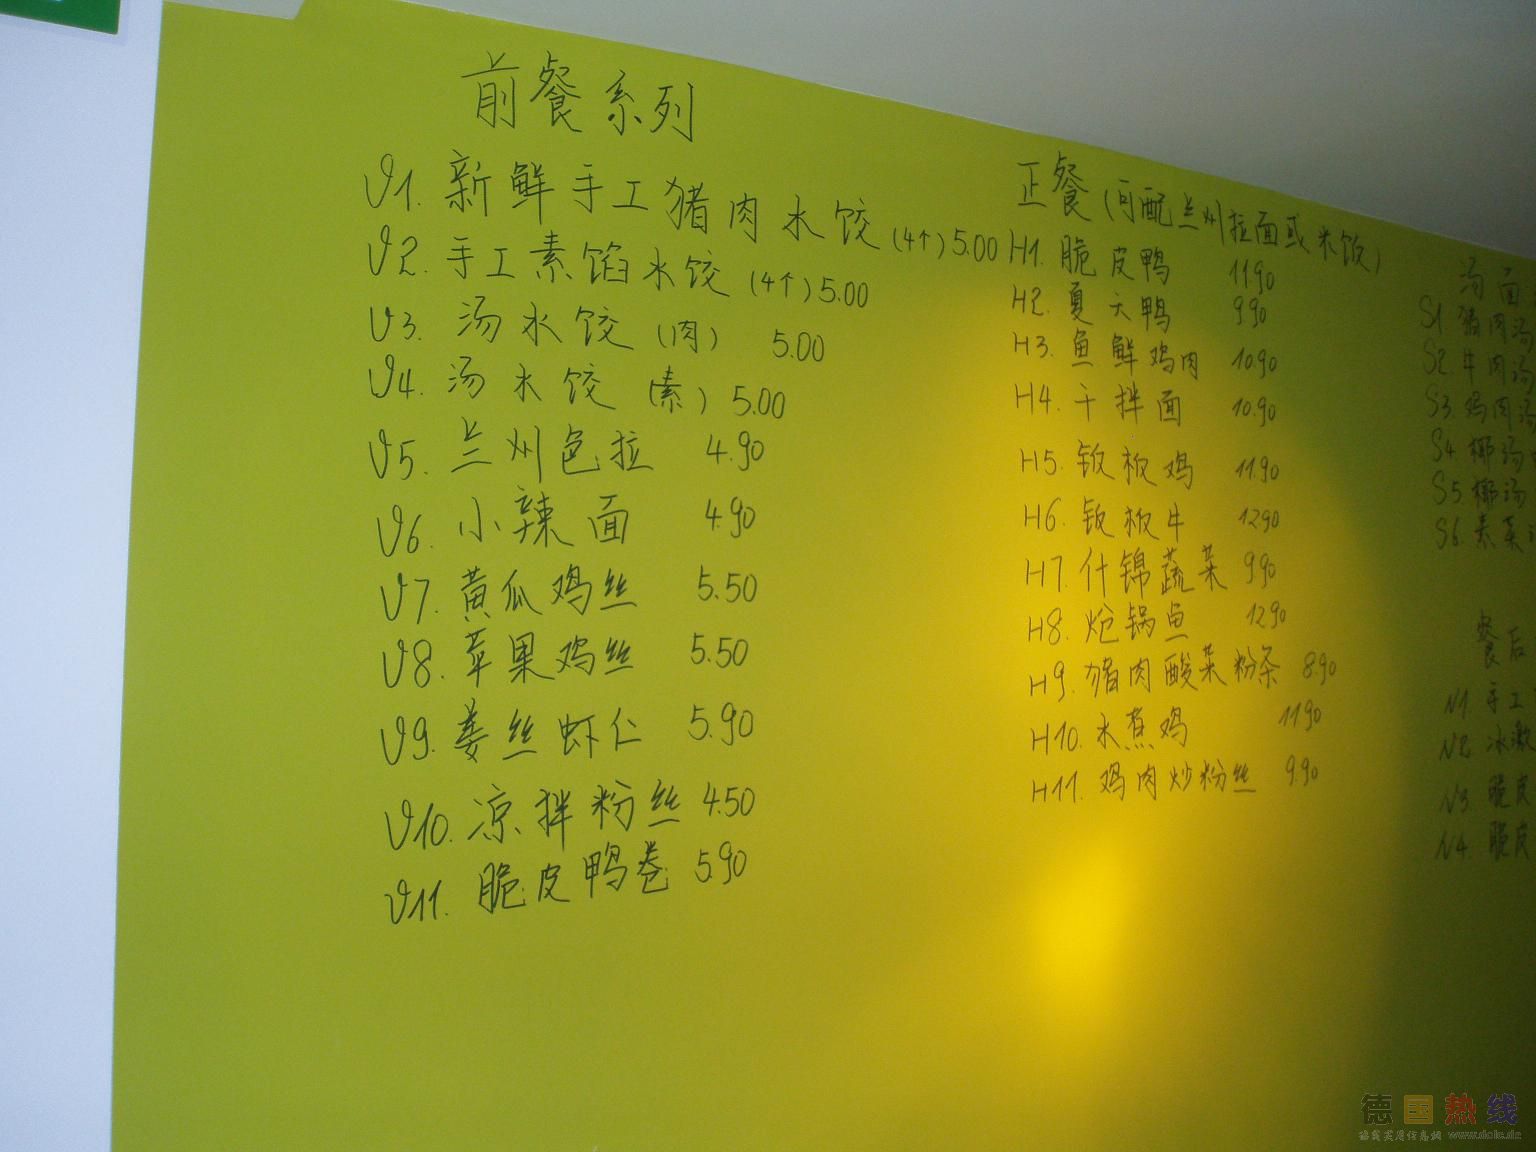 前餐系列
V1. 新鲜手工猪肉水饺 (4个) 5.00
V2. 手工素馅水饺 (4个) 5.00
V3. 汤水饺 (肉) 5.00
V4. 汤水饺 (素) 5.00
V5. 兰州色拉 4.90
V6. 小辣面 4.90
V7. 黄瓜鸡丝 5.50
V8. 苹果鸡丝 5.50
V9. 姜丝虾仁 5.90
V10. 凉拌粉丝 4.50
V11. 脆皮鸭卷 5.90
正餐 (可配兰州拉面或米饭)
H1. 脆皮鸭 11.90
H2. 夏天鸭 9.90
H3. 鱼鲜鸡肉 10.90
H4. 干拌面 10.90
H5. 钣板鸡 11.90
H6. 钣板牛 12.90
H7. 什锦蔬菜 9.90
H8. 炝锅鱼 12.90
H9. 猪肉酸菜粉条 8.90
H10. 水煮鸡 11.90
H11. 鸡肉炒粉丝 9.90
汤面
S1 猪肉汤
S2. 牛肉汤
S3 鸡肉汤
S4 椰汤
S5. 椰汤
S6. 素菜
餐后
N1. 手工
N2. 冰激
N3 脆皮
N4. 脆皮
德国热线
www.dolc.de